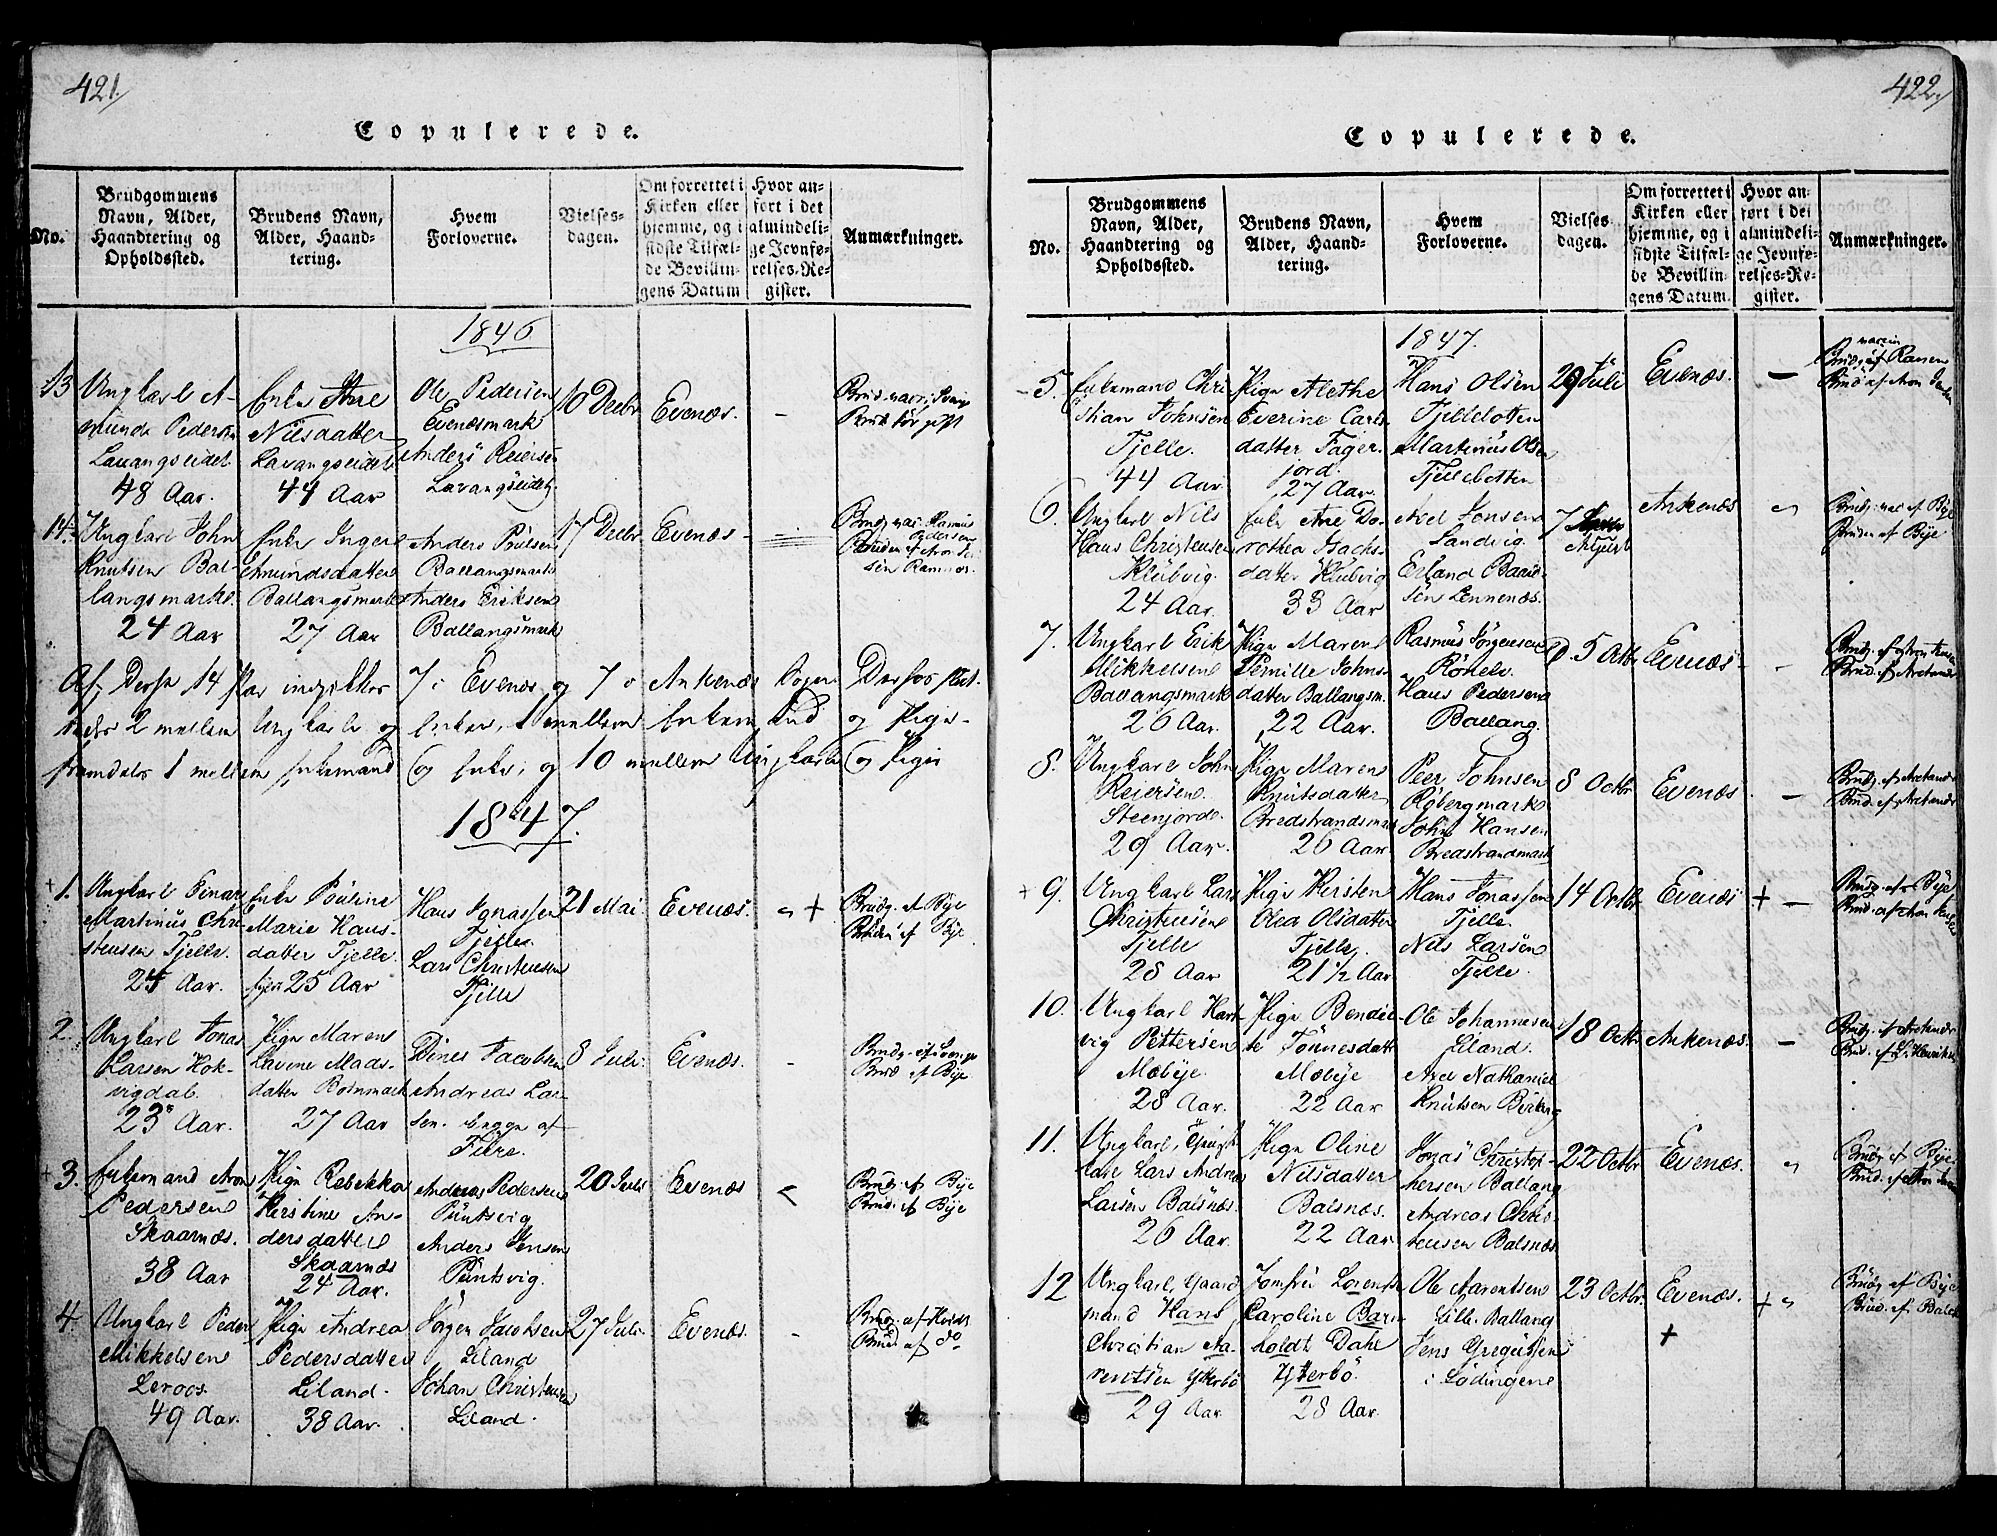 421.
Copulerede.
No.
Brudgommens
Navn, Alder,
Haandtering og
Opholdssted.
Brudens Navn,
Alder, Haand-
tering.
Hvem
Forloverne.
Vielses-
dagen.
Om forrettet i
Kirken eller
hjemme, og i
sidste Tilfæl-
de Bevillin-
gens Datum
Hvor an-
ført i det
almindeli-
ge Jevnfø-
relses-Re-
gister.
Anmærkninger.
1846
13
Ungkarl A-
munda Pedersen
Lavangseidet
48 Aar.
Enke Ane
Nilsdatter
Lavangseidet
44 Aar
Ole Pedersen
Evenæsmark
Anders Reiersen
Lavangseidet
10 Decbr
Evenæs.
-
14.
Ungkarl John
Knutsen Bal-
langsmark.
24 Aar
Enke Inger
Amundsdatter
Ballangsmark
27 Aar
Anders Pedersen
Ballangsmark
Anders Eriksen
Ballangsmark
17 Decbr
Evenæs
Af Disse 14 Par 7 i Evenæs og 7 Ankenæs
2 mellem Ungkarle og Enker, 1 mellem Enkemand og Pige
1 mellem Enkemand og Enke, og 10 mellem Ungkarle og Piger
1847.
+ 1.
Ungkarl Peder
Martinus Chri-
stensen Tjelle.
24 Aar.
Enke Pouline
Marie Hans-
datter Tjelle.
25 Aar
Hans Jonassen
Tjelle.
Lars Christensen
Tjelle
21 Mai.
Evenæs.
+
Brudg. af Bye
Bruden af Bye
2.
Ungkarl Jonas
Larsen Kok-
vigdal.
23 Aar.
Pige Maren
Lavine Mads-
datter Botnmark
27 Aar
Dines Jacobsen
Andreas Lar-
sen. begge af
Fiære.
8 Juli.
Evenæs.
-
Brud af Bye
+ 3.
Enkemand Aron
Pedersen
Skaarnæs.
38 Aar
Pige Rebekka
Kirstine An-
dersdatter
Skaarnæs
24 Aar.
Andreas Pedersen
Puntsvig
Anders Jensen
Puntsvig.
20 Juli
Evenæs
Brudg. af Bye
Brud. af Bye
4.
Ungkarl Peder
Mikkelsen
Leroos.
49 Aar.
Pige Andrea
Pedersdatter
Liland.
38 Aar.
Jørgen Jacobsen
Liland
Johan Christensen
Liland.
27 Juli.
Evenæs.
-
Brud af do
422.
Copulerede.
No.
Brudgommens
Navn, Alder,
Haandtering og
Opholdssted.
Brudens Navn,
Alder, Haand-
tering.
Hvem
Forloverne.
Vielses-
dagen.
Om forrettet i
Kirken eller
hjemme, og i
sidste Tilfæl-
de Bevillin-
gens Datum.
Hvor an-
ført i det
almindeli-
ge Jevnfø-
relses-Re-
gister.
Anmærkninger.
1847.
5.
Enkemand Chri-
stian Johnsen
Tjelle.
44 Aar
Pige Alethe
Everine Carls-
datter Fager-
jord.
27 Aar.
Hans Olsen
Tjellebotten
Martinus Olsen
Tjellebotten
29 Juli
Evenæs.
-
6.
Ungkarl Nils
Hans Christensen
Klubvig.
24 Aar.
Enke Ane Do-
rothea Isachs-
datter Klubvig
33 Aar
Axel Jonsen
Sandvig
Erland Baard-
sen Lennenæs.
7
August
Ankenæs
Brudg. var af Bye
Bruden af Bye
7.
Ungkarl Erik
Mikkelsen
Ballangsmark
26 Aar.
Pige Maren
Pernille Johns-
datter Ballangsm.
22 Aar.
Rasmus Jørgensen
Hans Pedersen
Ballang.
5 Octbr
Evenæs
-
8.
Ungkarl John
Reiersen.
Steenjord.
29 Aar.
Pige Maren
Knutsdatter
Bredstrandsmark
26 Aar.
Peer Johnsen
Røbergmark
John Hansen
Bredstrandmark
8 Octbr
Evenæs.
-
+ 9.
Ungkarl Lars
Christensen
Tjelle
28 Aar
Pige Kirsten
Olea Olsdatter
Tjelle,
21 1/2 Aar
Hans Jonassen
Tjelle.
Nils Larsen
Tjelle.
14 Octbr.
Evenæs
+ -
Brudg. af Bye
10.
Ungkarl Hart-
vig Pettersen
Mæbye.
28 Aar.
Pige Bendic-
te Tønnesdatter
Mæbye
22 Aar
Ole Johannesen
Liland.
Axel Nathaniel
Knutsen
18 Octbr
Ankenæs.
-
11.
Ungkarl,
Lars Andreas
Larsen Balsnæs.
26 Aar.
Pige Oline
Nilsdatter
Balsnæs.
22 Aar
Jonas Christop-
hersen Ballang
Andreas Chris-
tensen Balsnæs
22 Octbr
Evenæs.
Brudg. af Bye
12
Ungkarl, Gaard-
mand Hans
Christian Aa-
rentsen Ytterbø
29 Aar.
Jomfru Lorentse
Caroline Barn-
holdt Dahl
Ytterbø.
28 Aar.
Ole Aarentsen
Lille Ballang
Jens Gregussen
i Lødingen
23 Octbr.
Evenæs.
+
+
Brudg. af Bye